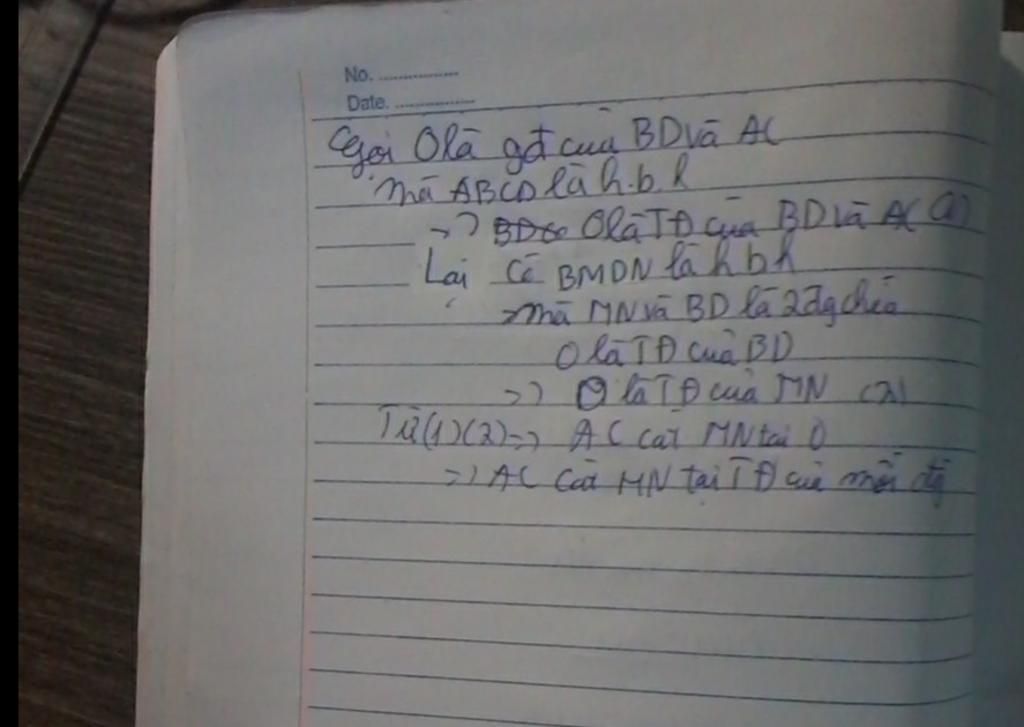 No. ................
Date. ................
Gọi O là gđ của BD và AC
mà ABCD là h.b.h
=> O là TĐ của BD và AC (1)
Lại có BMDN là h b h
mà MN và BD là 2 đg chéo
O là TĐ của BD
=> O là TĐ của MN (2)
Từ (1) (2) => AC cắt MN tại O
=> AC cắt MN tại TĐ của mỗi đg